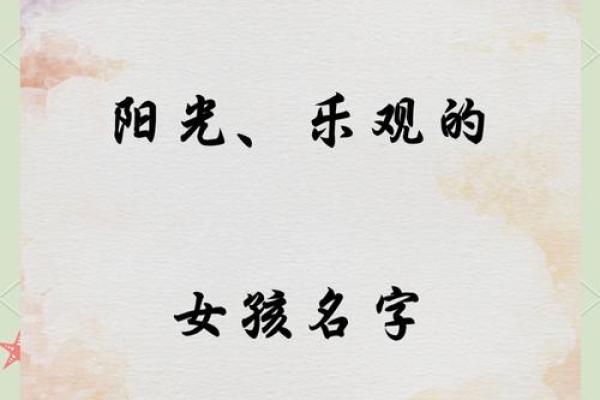 阳光、乐观的
女孩名字